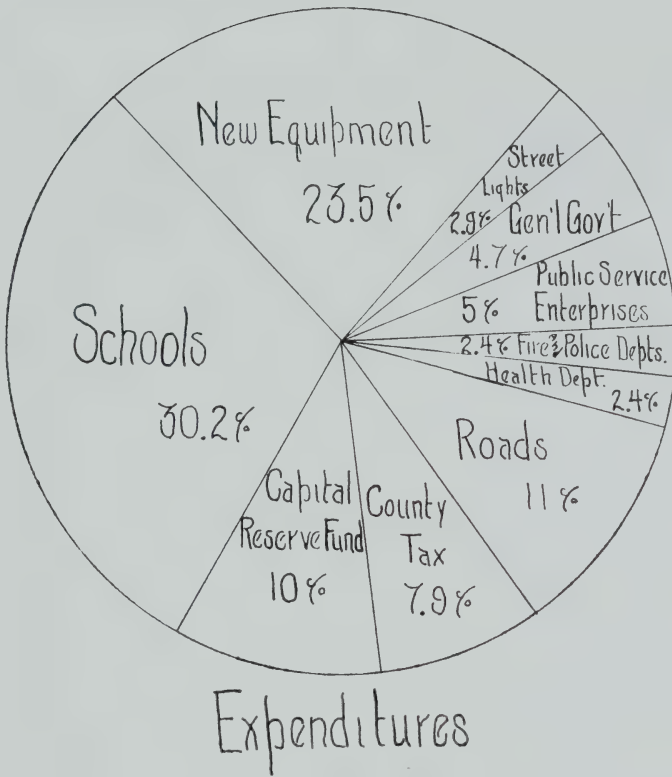 New Equipment
23.5%
Street
Lights
2.9%
Gen'l Gov't
4.7%
Public Service
5% Enterprises
2.4% Fire & Police Depts.
Health Dept.
2.4%
Roads
11%
County
Tax
7.9%
Capital
Reserve Fund
10%
Schools
30.2%
Expenditures